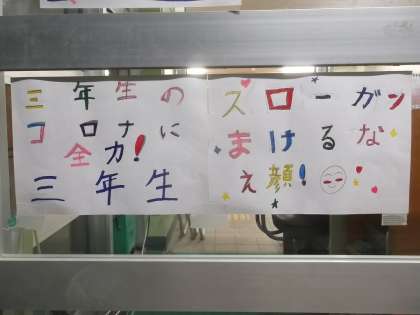 三年生のスローガン
コロナにまけるな
全力!
三年生 え顔!